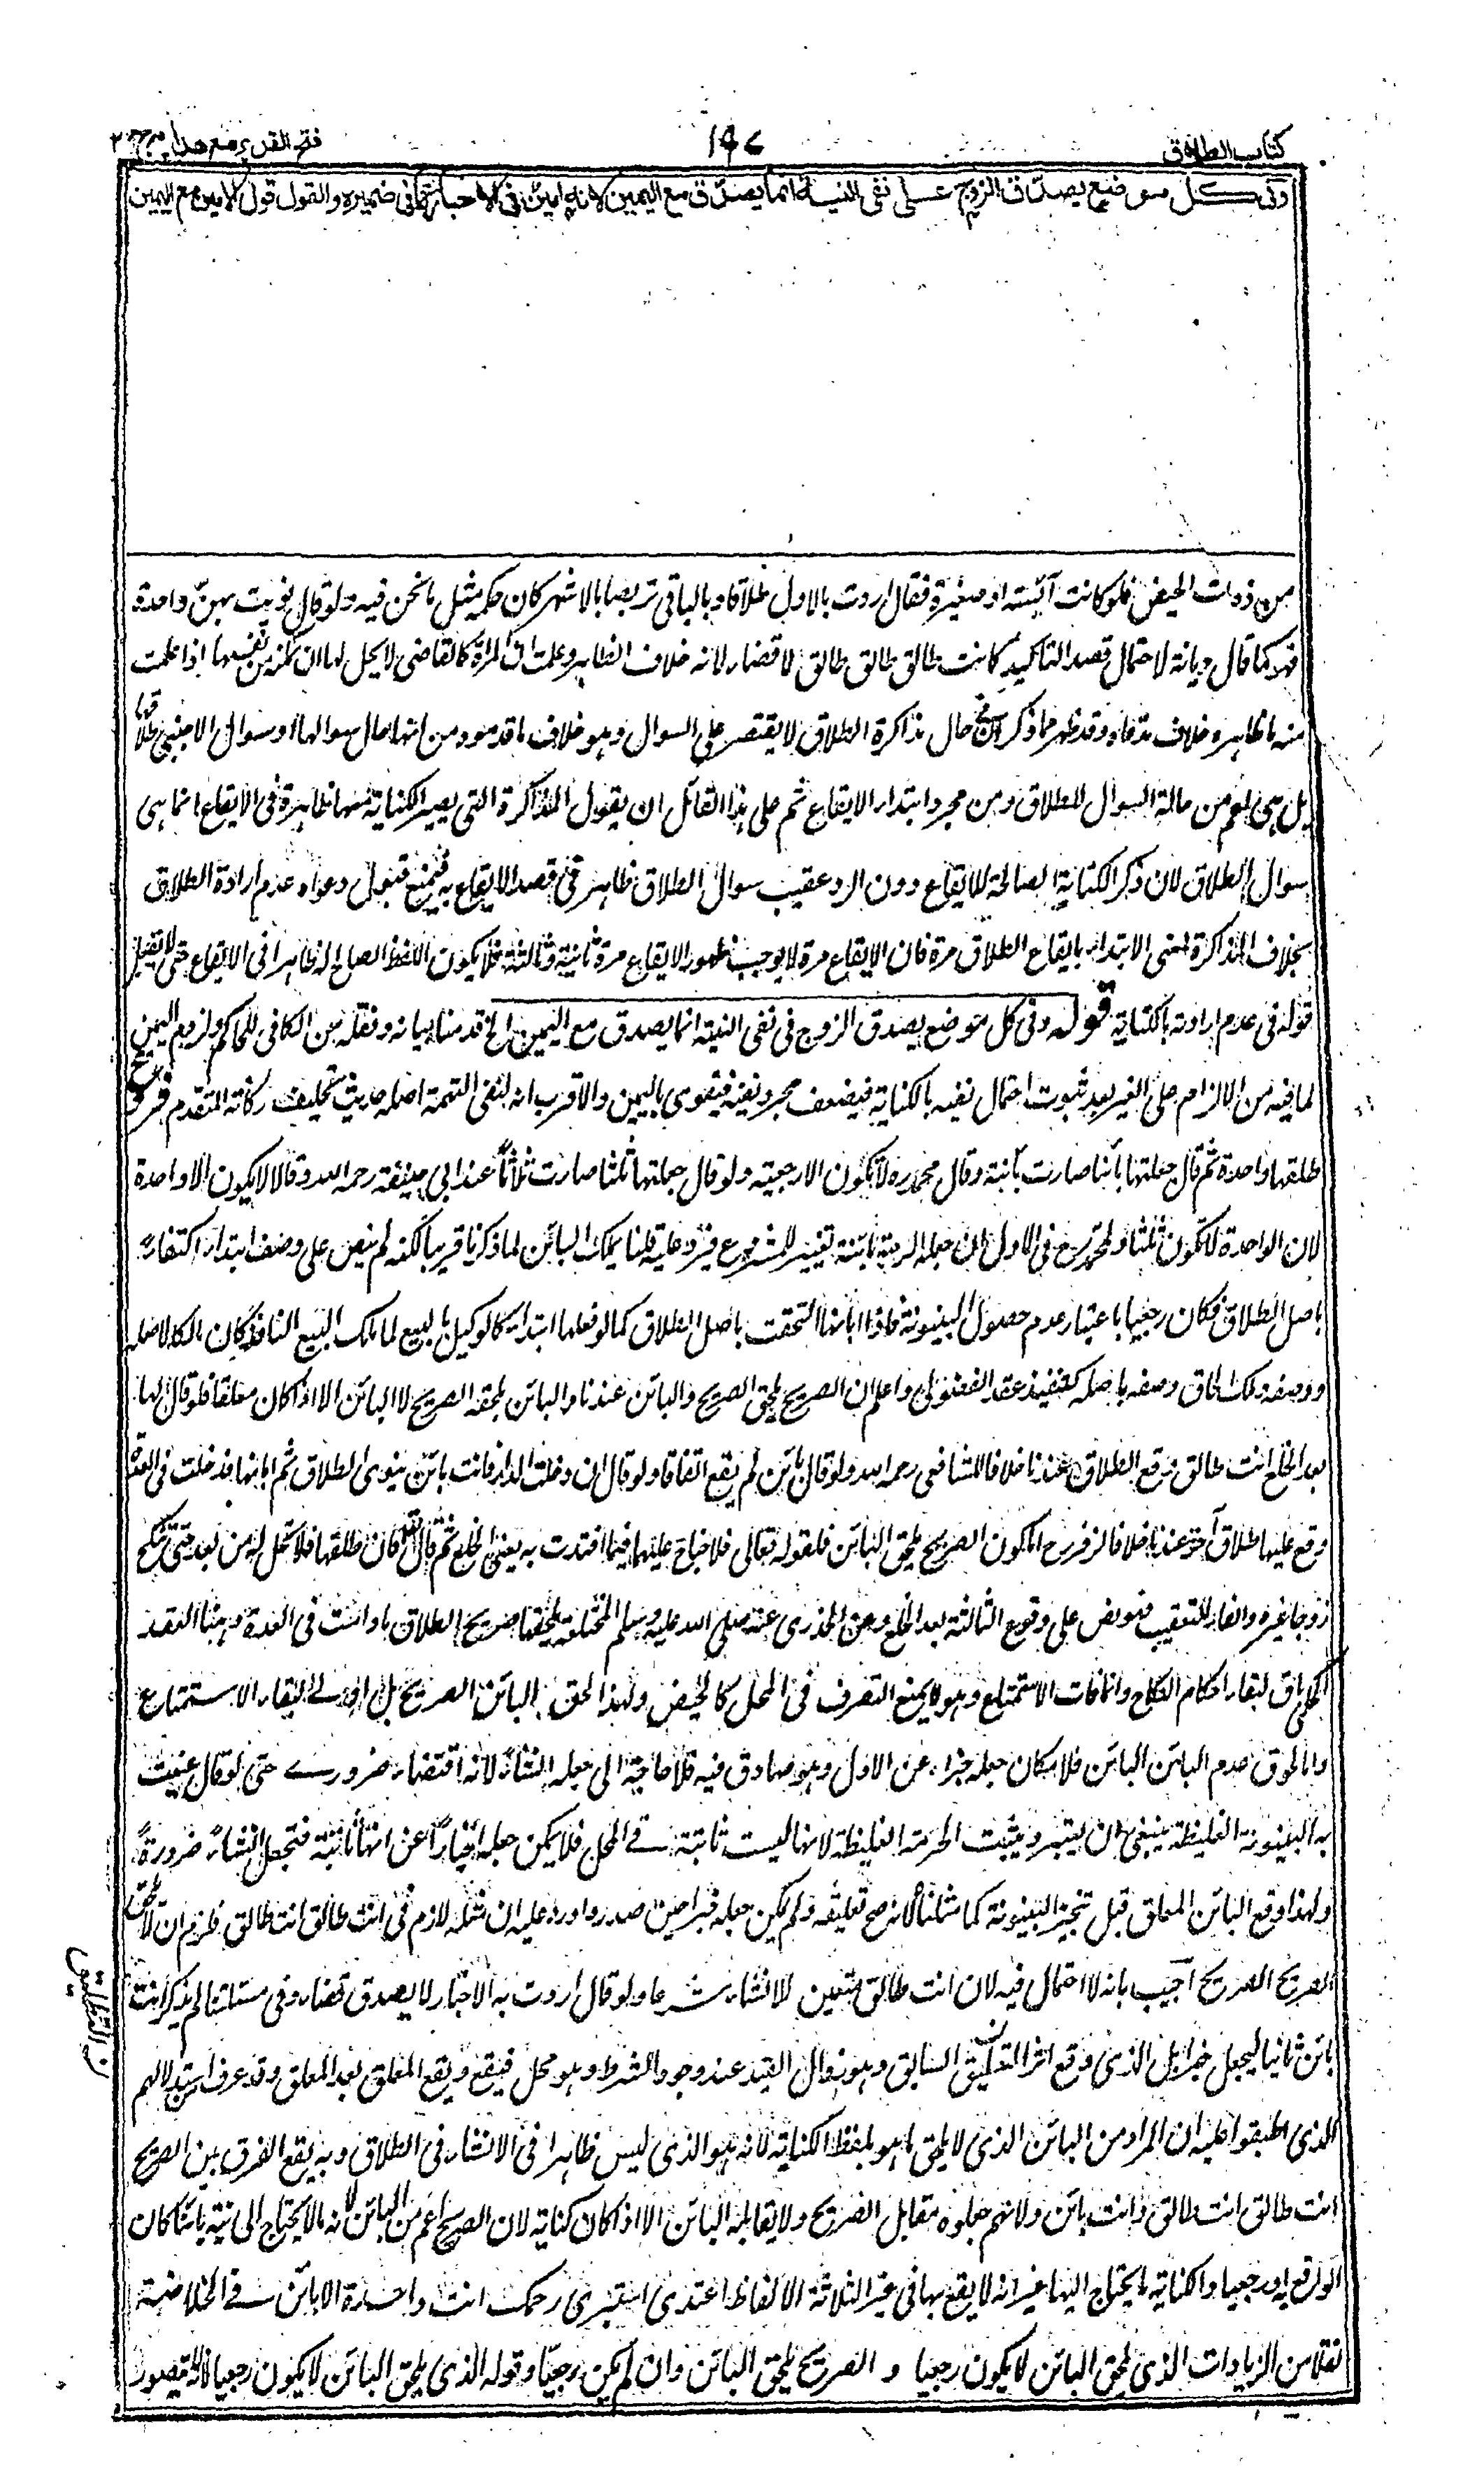 كتاب الطلاق
١٩٧
فتح القدير مع هدايه ج ٢
وفي كل موضع يصدق الزوج على نفي النية انما يصدق مع اليمين لانه امين في الاخبار عما في ضميره والقول قول الامين مع اليمين
من ذوات الحيض فلو كانت آئسة او صغيرة فقال اردت بالاول طلاقا وبالباقي تربصا بالاشهر كان حكمه مثل ما نحن فيه ولو قال نويت بهن واحدة
فهو كما قال ديانة لاحتمال قصد التاكيد كانت طالق طالق طالق لا قضاء لانه خلاف الظاهر وعلمت ان المرأة كالقاضي لا يحل لها ان تمكنه من نفسها اذا علمت
منه ما ظاهره خلاف مدعاه وقد ظهر مما ذكر ان حال مذاكرة الطلاق لا يقتصر على السوال وهو خلاف ما قدموه من انها حال سوالها او سوال الاجنبي طلاقها
بل هي اعم من حالة السوال للطلاق ومن مجرد ابتداء الايقاع ثم على هذا القائل ان يقول المذاكرة التي يصير الكناية معها ظاهرة في الايقاع انما هي
سوال الطلاق لان ذكر الكناية الصالحة للايقاع دون الرد عقيب سوال الطلاق ظاهر في قصد الايقاع به فيمنع قبول دعواه عدم ارادة الطلاق
بخلاف المذاكرة بمعنى الابتداء بايقاع الطلاق مرة فان الايقاع مرة لا يوجب ظهور الايقاع مرة ثانية وثالثة فلا يكون اللفظ الصالح له ظاهرا في الايقاع حتى لا يقبل
قوله في عدم ارادته بالكناية قوله وفي كل موضع يصدق الزوج في نفي النية انما يصدق مع اليمين الخ قدمنا بيانه ونقله من الكافي للحاكم ولزوم اليمين
لما فيه من الالزام على الغير بعد ثبوت احتمال نفيه بالكناية فيضعف مجرد نفيه فيقوى باليمين والاقرب انه لنفي التهمة اصله حديث تحليف ركانة المتقدم فروع
طلقها واحدة ثم قال جعلتها بائنا صارت بائنة وقال محمد رح لا تكون الا رجعية ولو قال جعلتها ثلثا صارت ثلاثا عند ابي حنيفة رحمه الله وقالا لا يكون الا واحدة
لان الواحدة لا تكون ثلثا ولمحمد رح في الاول ان جعله الرجعية بائنة تغيير للمشروع فيرد عليه قلنا يملك البائن لما ذكرنا قريبا لكنه لم ينص على وصف ابتداء اكتفاء
باصل الطلاق فكان رجعيا باعتبار عدم حصول البينونة فاذا ابانها التحقت باصل الطلاق كما لو فعلها ابتداء كالوكيل بالبيع لما ملك البيع النافذ كان مالكا لاصله
ووصفه وملك الحاق وصفه باصله كتنفيذ عقد الفضولي واعلم ان الصريح يلحق الصريح والبائن عندنا والبائن يلحقه الصريح لا البائن الا اذا كان معلقا فلو قال لها
بعد الخلع انت طالق وقع الطلاق عندنا خلافا للشافعي رحمه الله ولو قال بائن لم يقع اتفاقا ولو قال ان دخلت الدار فانت بائن ينوي الطلاق ثم ابانها فدخلت في العدة
وقع عليها طلاق آخر عندنا خلافا لزفر رح اما كون الصريح يلحق البائن فلقوله تعالى فلا جناح عليهما فيما افتدت به يعني الخلع ثم قال فان طلقها فلا تحل له من بعد حتى تنكح
زوجا غيره والفاء للتعقيب فهو نص على وقوع الثالثة بعد الخلع وعن الخدري عنه صلى الله عليه وسلم المختلعة يلحقها صريح الطلاق ما دامت في العدة وهذا القيد
الحكمي باق لبقاء احكام النكاح وانما فات الاستمتاع وهو لا يمنع التصرف في المحل كالحيض ولهذا الحق البائن الصريح بل اولى لبقاء الاستمتاع
واما لحوق عدم البائن البائن فلامكان جعله خبرا عن الاول وهو صادق فيه فلا حاجة الى جعله انشاء لانه اقتضاء ضروري حتى لو قال عنيت
به البينونة الغليظة ينبغي ان يعتبر ويثبت الحرمة الغليظة لانها ليست ثابتة في المحل فلا يمكن جعله اخبارا عن انها ثابتة فتجعل انشاء ضرورة
ولهذا وقع البائن المعلق قبل تنجيز البينونة كما مثلنا لانه صح تعليقه ولم يكن جعله خبرا حين صدر واورد عليه ان مثله لازم في انت طالق انت طالق فلزم ان لا يلحق
الصريح الصريح اجيب بانه لا احتمال فيه لان انت طالق متعين للانشاء شرعا ولو قال اردت به الاخبار لا يصدق قضاء وفي مسئلتنا لم يذكر انت
بائن ثانيا ليجعل خبرا بل الذي وقع اثر التعليق السابق وهو زوال القيد عند وجود الشرط وهو محل فيقع ويقع المعلق بعد المعلق وقد عرف استدلالهم
الذي اطبقوا عليه ان المراد من البائن الذي لا يلحق ما هو بلفظ الكناية لانه هو الذي ليس ظاهرا في الانشاء في الطلاق وبه يقع الفرق بين الصريح
انت طالق انت طالق وانت بائن ولانهم جعلوه مقابل الصريح ولا يقابله البائن الا اذا كان كناية لان الصريح اعم من البائن لانه ما لا يحتاج الى نية بائنا كان
الواقع به او رجعيا والكناية ما يحتاج اليها غير انه لا يقع بها في غير الثلاثة الالفاظ اعتدي استبري رحمك انت واحدة الا بائن في الخلاصة
نقلا من الزيادات الذي يلحق البائن لا يكون رجعيا و الصريح يلحق البائن وان لم يكن رجعيا وقوله الذي يلحق البائن لا يكون رجعيا لانه يتصور